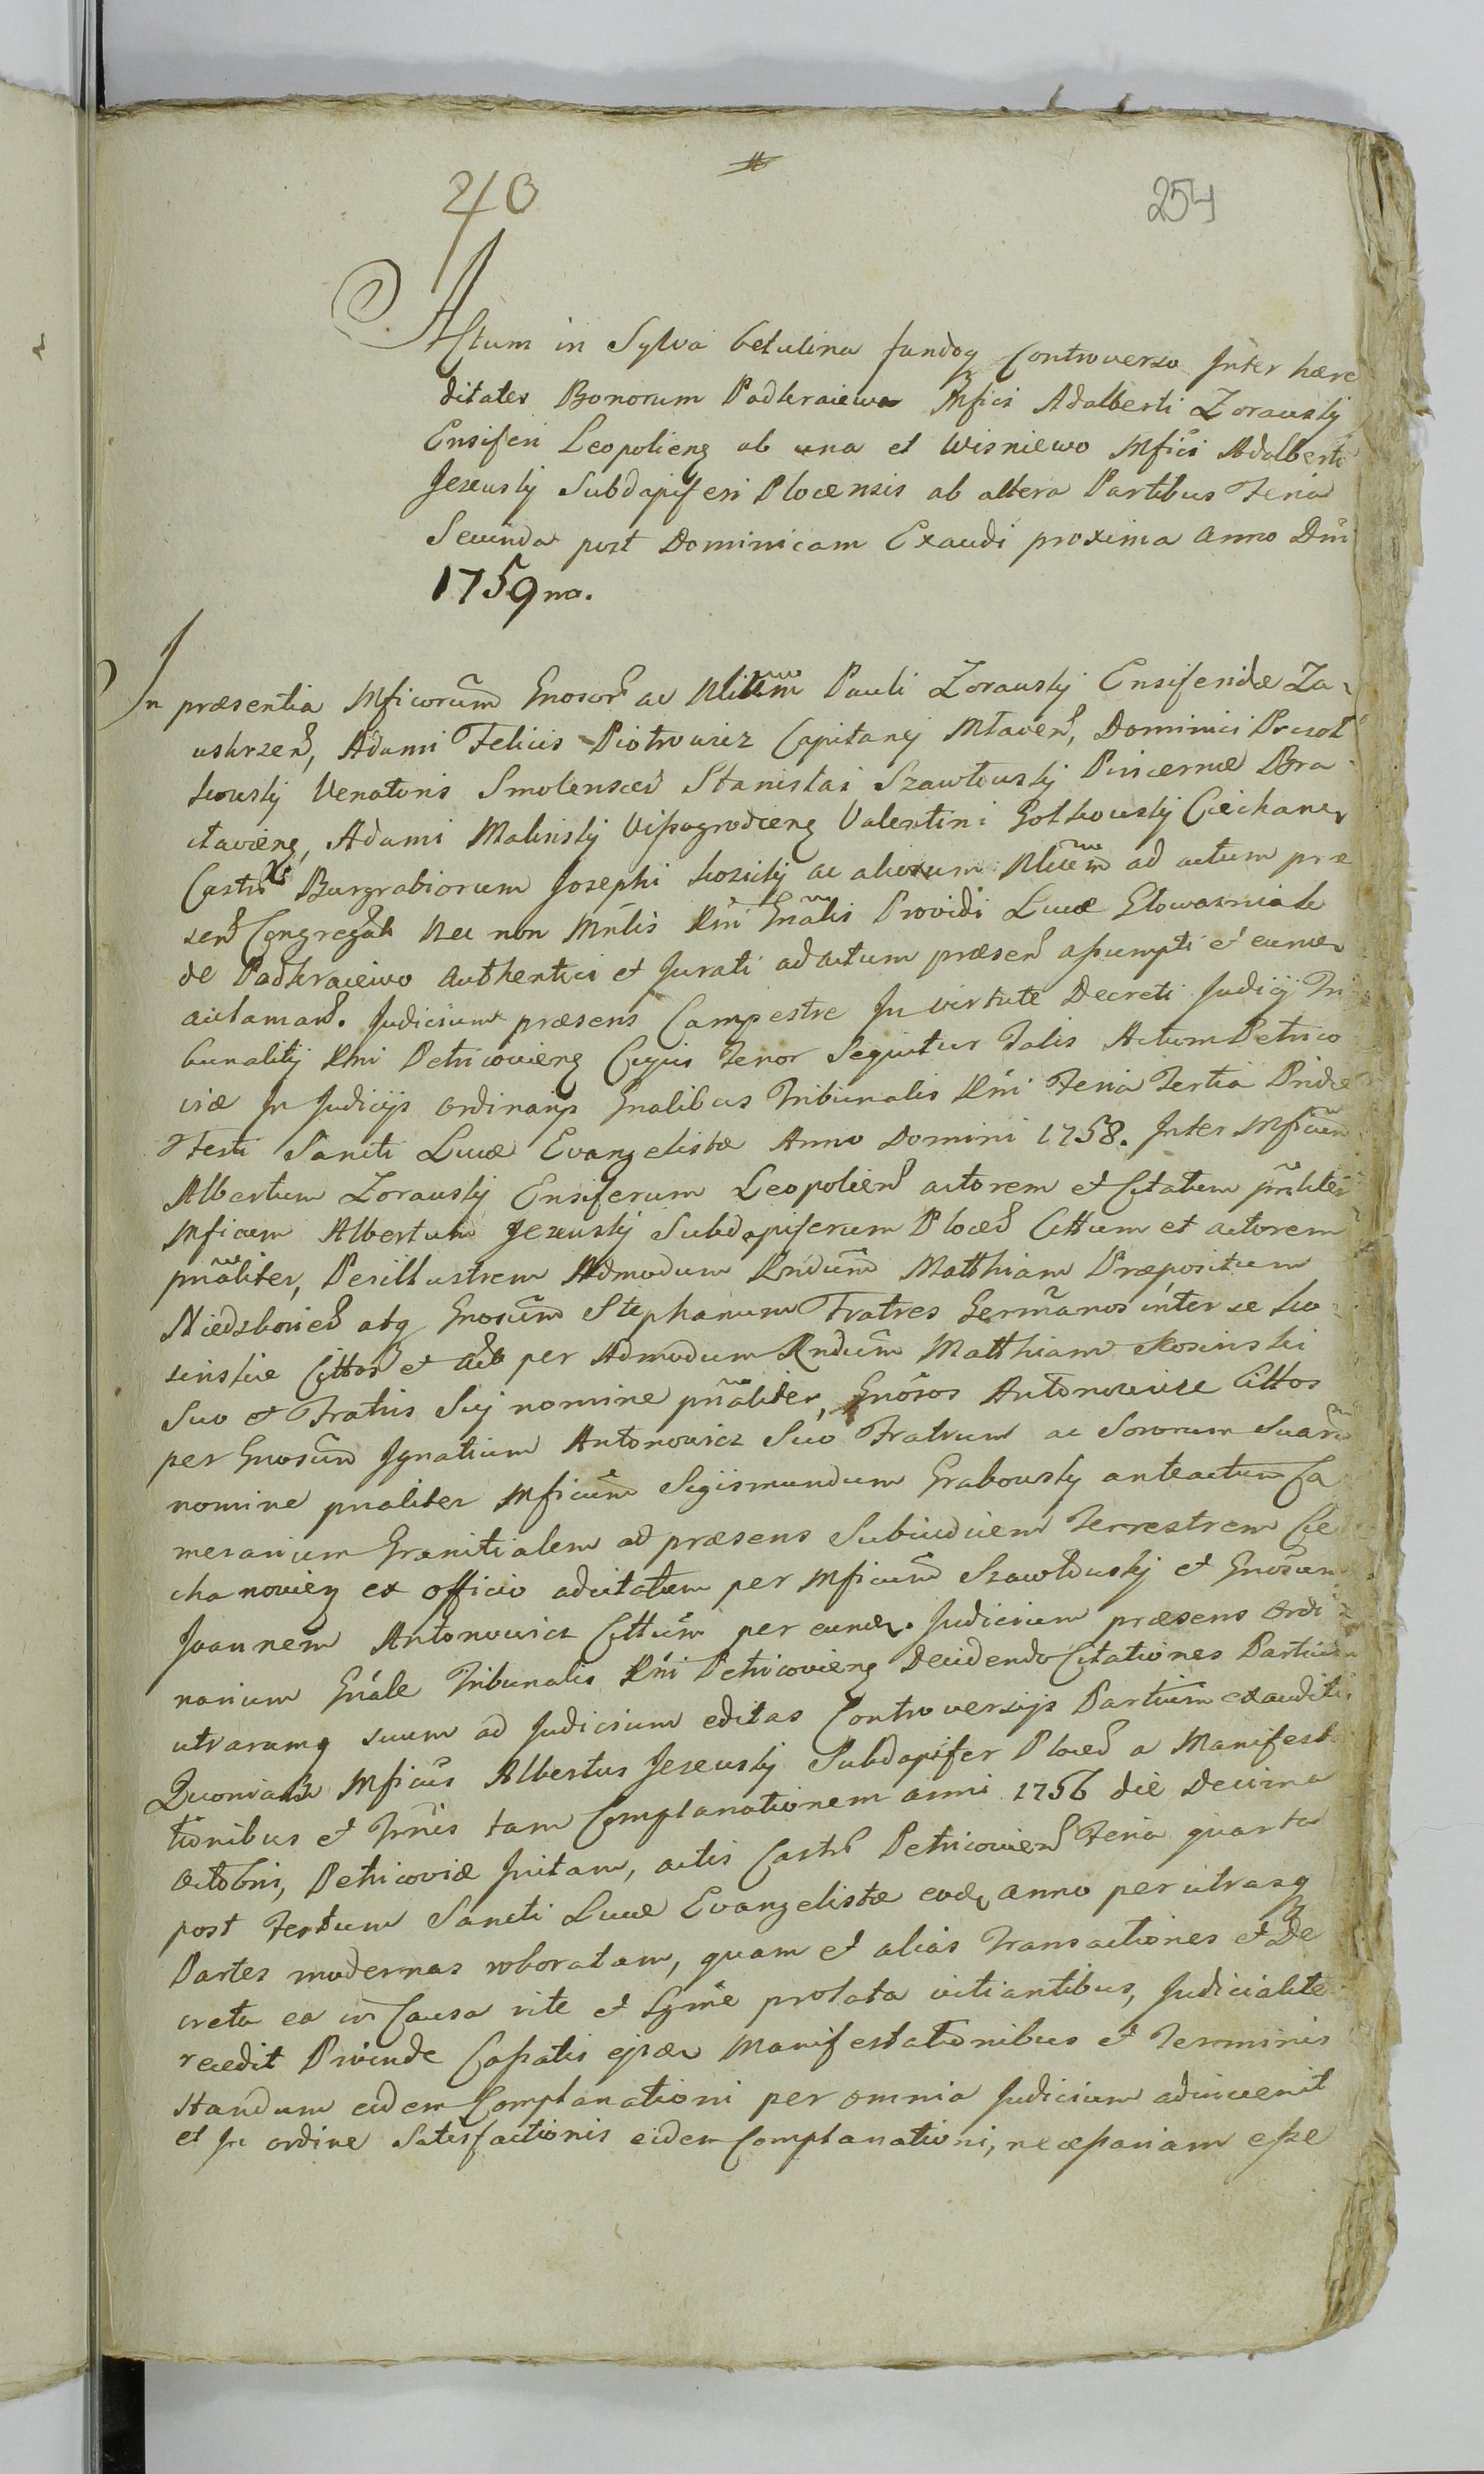 #
240
254
Actum in Sylva betulina fundoq Controverso Inter hære
ditates Bonorum Padkraiewo Mfici Adalberti Zorawskj
Ensiferi Leopolieng ab una et Wisniewo Mfici Adalberti
Jezewskj Subdapiferi Plocensis ab altera Partibus Feria
Secunda post Dominicam Exaudi proxima Anno Dni
1759no.
In præsentia Mficorum Gnosor ac Nlium Pauli Zorawskj Ensiferidæ Za-
uskrzen, Adami Felicis Piotrowicz Capitanej Mlaven, Dominici
kowskj Venatoris Smolenscen Stanislai Szawłowskj Pincernæ Bra
claвieng, Adami Malinskj Vissogrodieng Valentini Gotkowskj Ciechanov
Castr Burgrabiorum Josephi kosickj ac aliorum Nlium ad actum præ
sen Congregat Nec non Mnlis Rni Gnalis Providi Lucæ Glowaczniak
de Padkraiewo Authentici et Jurati ad actum præsen assumpti et eum
aclaman. Judicium præsens Campestre In virtute Decreti Judicij Tri
bunalitij Rni Petricovieng Cujus Tenor Sequitur Talis Actum Petrico
viæ In Judicijs ordinarijs Gnalibus Tribunalis Rni Feria Tertia Pridie
Festi Sancti Lucæ Evangelistæ Anno Domini 1758. Inter Mficum
Albertum Zorawskj Ensiferum Leopolien actorem et Citatum pnaliter
Mficum Albertum Jezewskj Subdapiferum Plocen Cittum et actorem
pnaliter, Perillustrem Admodum Rndum Matthiam Præpositum
Niedzbovien atq Gnosum Stephanum Fratres Germanos inter se ko
sinskie Cittos et act per Admodum Rndum Matthiam Kosinski
Suo et Fratris Sui nomine pnaliter, Gnosos Antonowicze Cittos
per Gnosum Ignatium Antonowicz Suo Fratrum ac Sororum Suarum
nomine pnaliter Mficum Sigismundum Grabowskj anteactum Ca
merarium Granitialem ad præsens Subiudicem Terrestrem Cie
chanovieng ex officio adcitatum per Mficum Szawłowskj et Gnosum
Joannem Antonowicz Cittum per eund. Judicium præsens Ordi
narium Gnale Tribunalis Rni Petricovieng Decidendo Citationes Partium
utrarumq suum ad Judicium editas Controversijs Partium exauditis
Quoniam Mficus Albertus Jezewskj Subdapifer Plocen a Manifesta
tionibus et Tnis tam Complanationem anni 1756 die Decima
Octobris, Petricoviæ Initam, actis Castr Petricovien Feria quarta
post Festum Sancti Lucæ Evangelistæ eod anno per utrasq
Partes modernas roboratam, quam et alias Transactiones et De
creta ea in Causa rite et Lgme prolata vitiantibus, Judicialiter
recedit Proinde Cassatis ejsd Manifestationibus et Terminis
Standum eidem Complanationi per omnia Judicium adinvenit
et In ordine Satisfactionis eidem Complanationi, necessariam esse